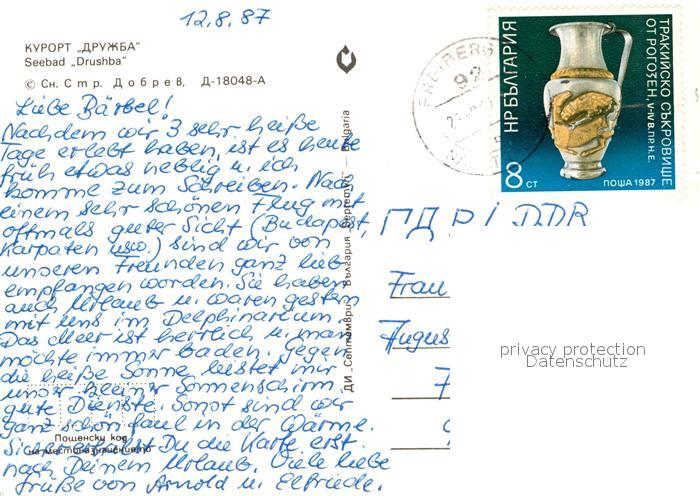 12.8.87
КУРОРТ „ДРУЖБА"
Seebad „Drushba"
© Сн. Стр. Добрев, Д-18048-А
Liebe Bärbel!
Nachdem wir 3 sehr heiße
Tage erlebt haben, ist es heute
früh etwas neblig u. ich
komme zum Schreiben. Nach
einem sehr schönen Flug mit
oftmals guter Sicht (Budapest,
Karpaten usw.) sind wir von
unseren Freunden ganz lieb
empfangen worden. Sie haben
auch Urlaub u. waren gestern
mit uns im Delphinarium.
Das Meer ist herrlich u. man
möchte immer baden. Gegen
die heiße Sonne leistet mir
unser kleiner Sonnenschirm
gute Dienste. Sonst sind wir
ganz schön faul in der Wärme.
Sicher erhältst Du die Karte erst
nach Deinem Urlaub. Viele liebe
Grüße von Arnold u. Elfriede.
Пощенски код
на местоназначението
ДИ „Септември" — България „Septemvri" — Bulgaria
НР БЪЛГАРИЯ
ТРАКИЙСКО СЪКРОВИЩЕ
ОТ РОГОЗЕН, V-IV В.ПР.Н.Е.
8 СТ
ПОЩА 1987
FREIBERG
92
ГДР / DDR
Frau
Augus
7
privacy protection
Datenschutz